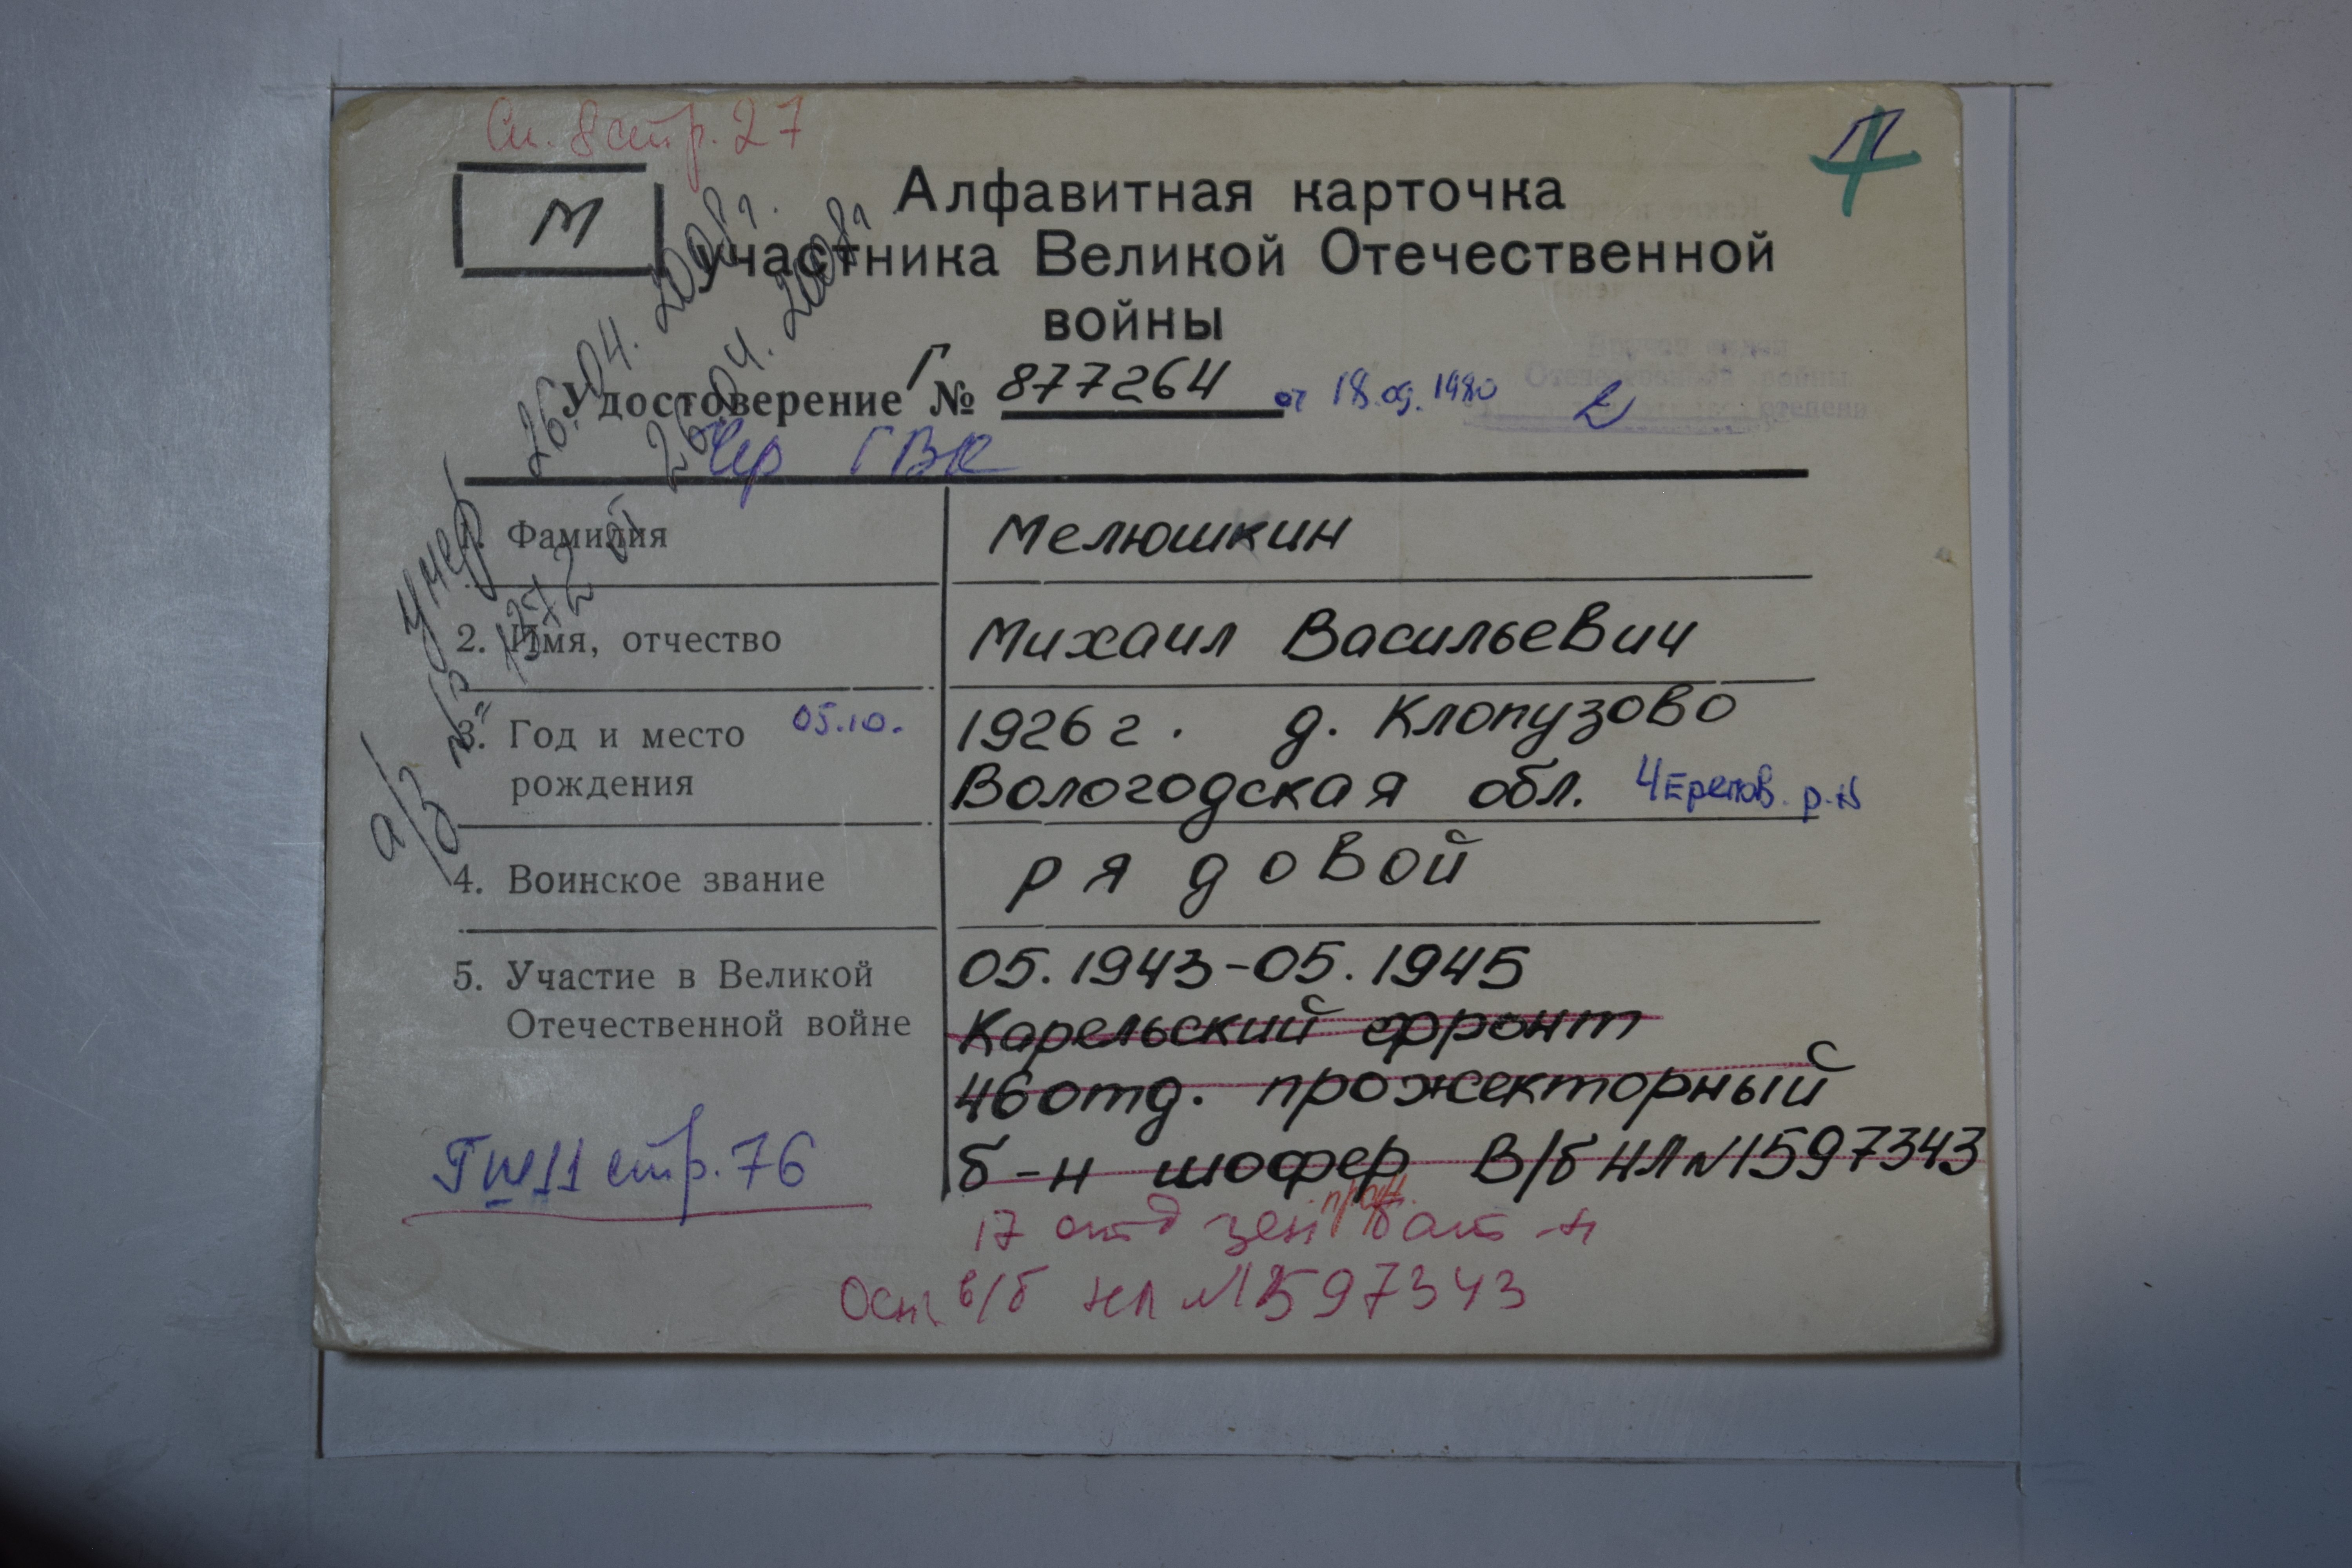 Сп. 8 стр. 27
М
Алфавитная карточка
участника Великой Отечественной
войны
Удостоверение Г № 877264 от 18.09.1980
Чер ГВК
умер 26.04.2008г.
а/з № 1372 от 26.04.2008г.
1. Фамилия Мелюшкин
2. Имя, отчество Михаил Васильевич
3. Год и место 05.10. 1926 г. д. Клопузово
рождения Вологодская обл. Черепов. р-н
4. Воинское звание рядовой
5. Участие в Великой 05.1943-05.1945
Отечественной войне Карельский фронт
46 отд. прожекторный
б-н шофер В/б НЛ №1597343
стр. 76
17 отд зен прож. бат-н
Осн. в/б нл №1597343